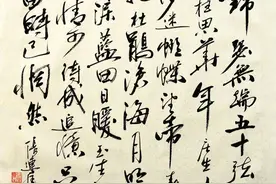 錦瑟無端五十弦
柱思華年庄生
迷蝴蝶望帝春
杜鵑滄海月明
淚藍田日暖玉生
情可待成追憶只
當時已惘然